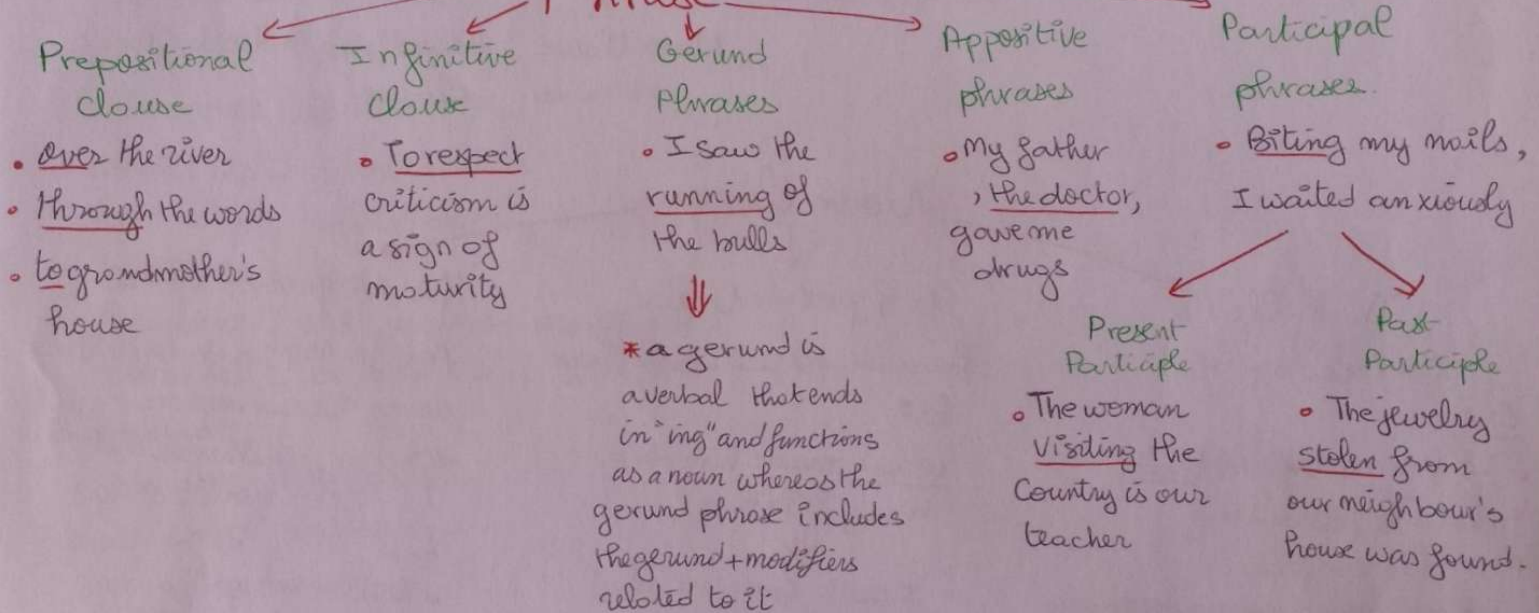 Prepositional
clause
• Over the river
• through the words
• to grandmother's
house
Infinitive
clause
• To respect
criticism is
a sign of
maturity
Gerund
Phrases
• I saw the
running of
the bulls
* a gerund is
a verbal that ends
in "ing" and functions
as a noun whereas the
gerund phrase includes
the gerund + modifiers
related to it
Appositive
phrases
• My father
, the doctor,
gave me
drugs
Participal
phrases.
• Biting my nails,
I waited anxiously
Present
Participle
• The woman
visiting the
Country is our
teacher
Past
Participle
• The jewelry
stolen from
our neighbour's
house was found.